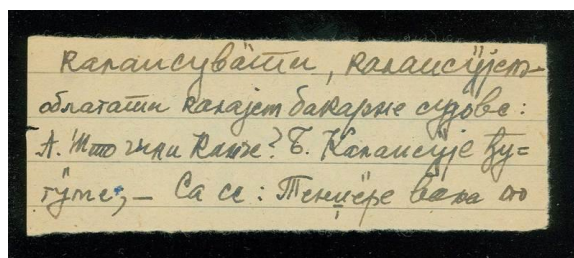 калаисува̏ти, калаису̏јем
облатати калајем бакарне судове:
А. Што чини Кања? Б. Калаисује ђу-
гу̏ме; — Са се: Тенџе̏ре ва̏ља